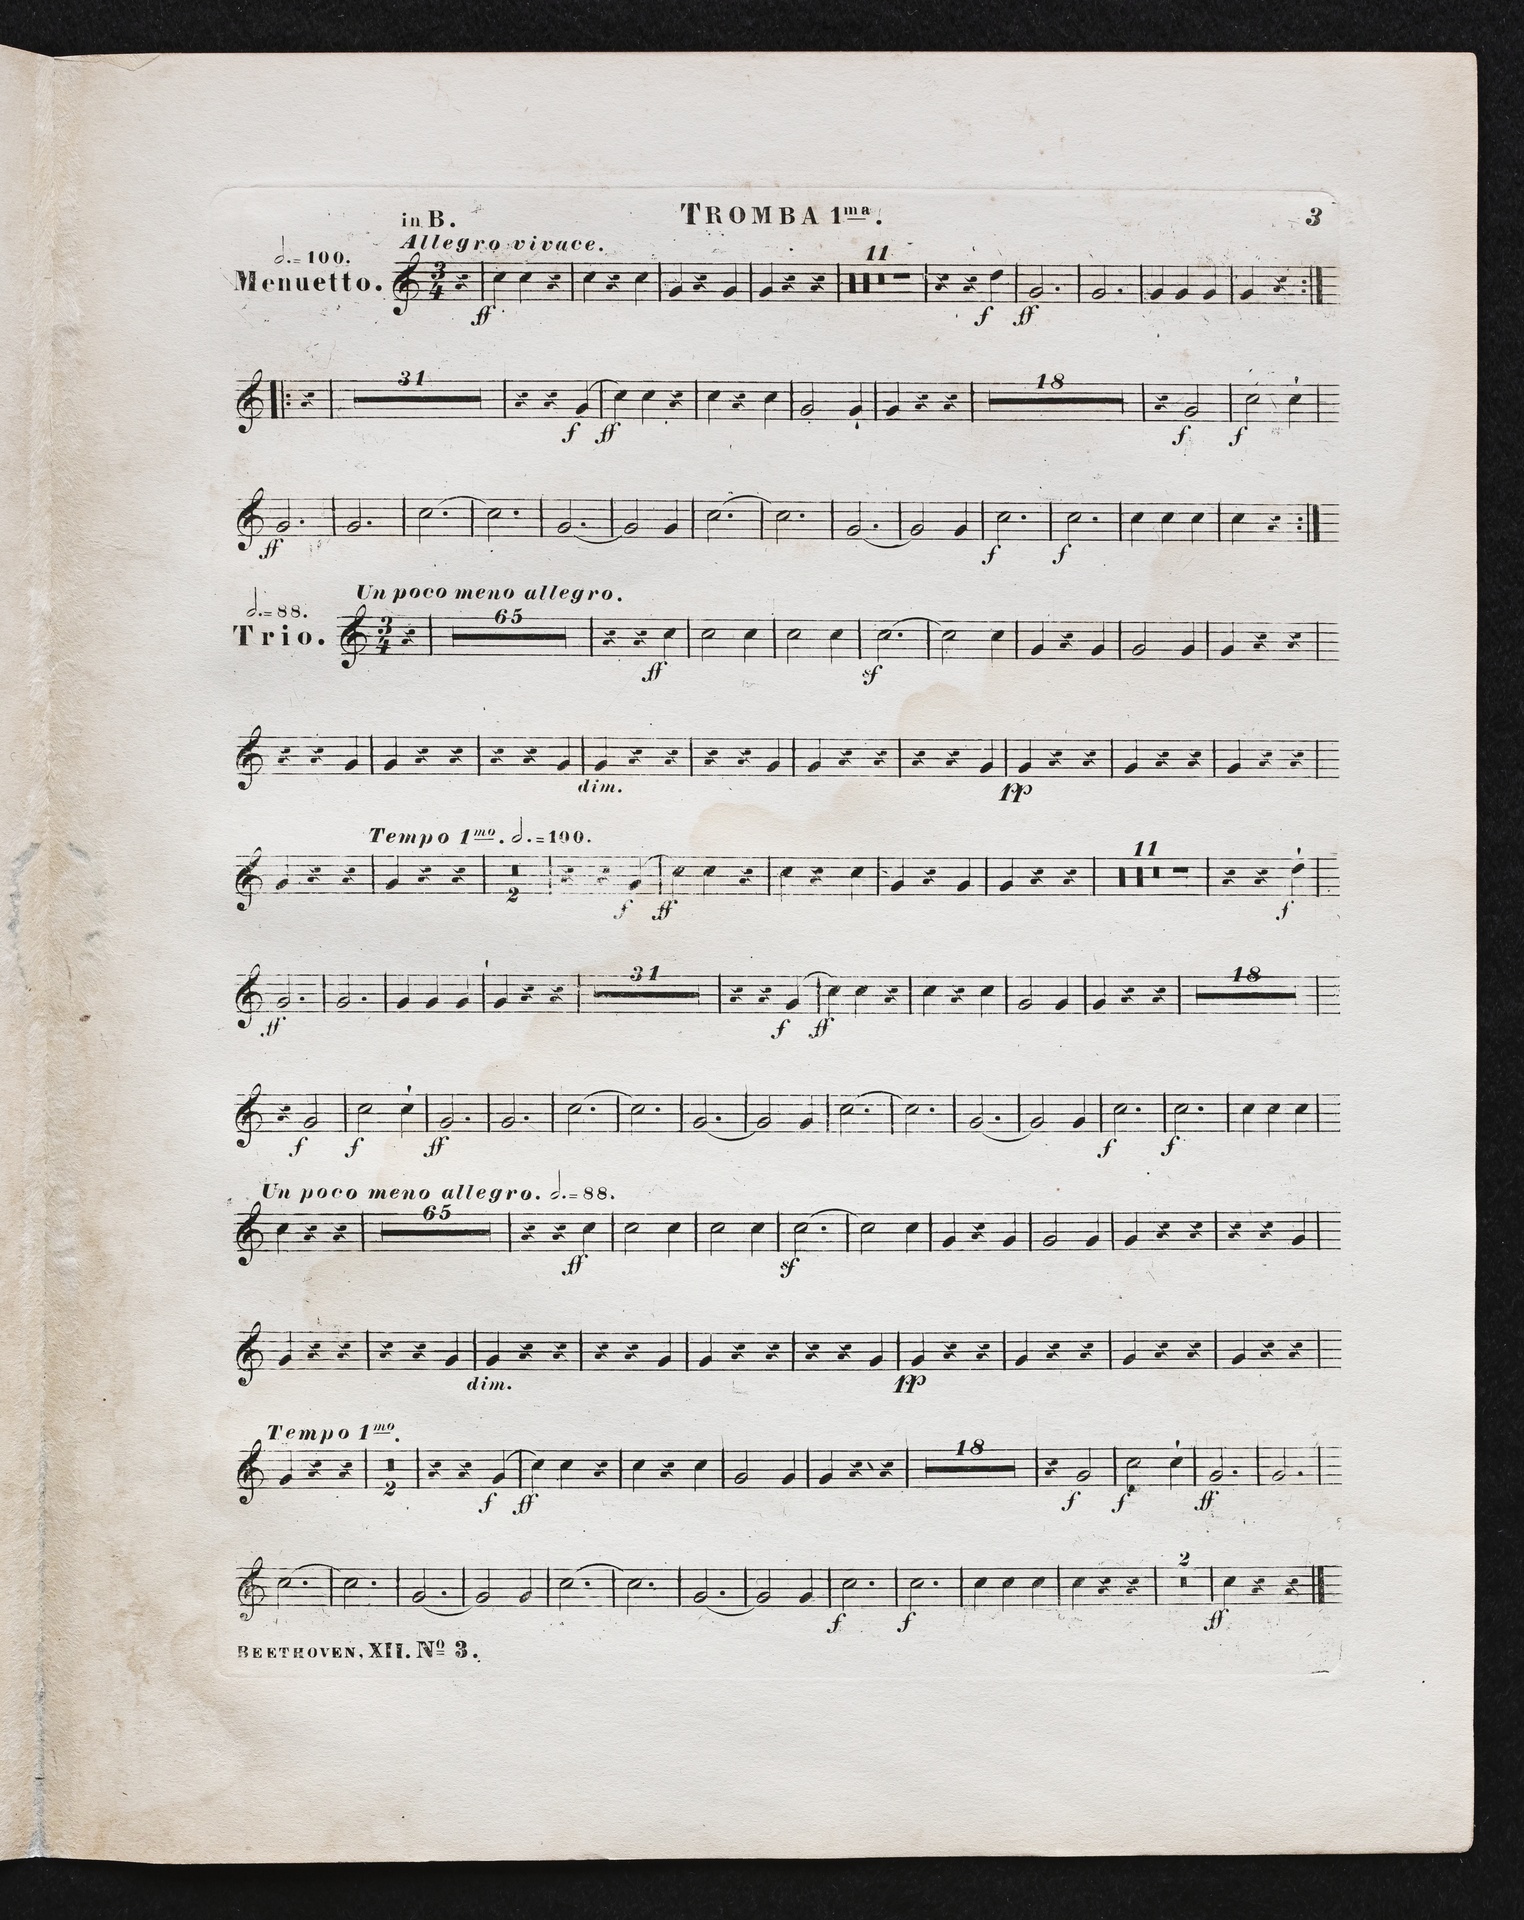 in B. TROMBA 1ma. 3
Allegro vivace.
𝅗𝅥. = 100.
11
Menuetto.
3
4
ff f ff
31 18
f ff f f
ff f f
Un poco meno allegro.
𝅗𝅥. = 88.
65
Trio.
3
4
ff sf
dim. pp
Tempo 1mo. 𝅗𝅥. = 100.
11
2
f ff f
31 18
ff f ff
f f ff f f
Un poco meno allegro. 𝅗𝅥. = 88.
65
ff sf
dim. pp
Tempo 1mo.
18
2
f ff f f ff
2
f f ff
BEETHOVEN, XII. No 3.